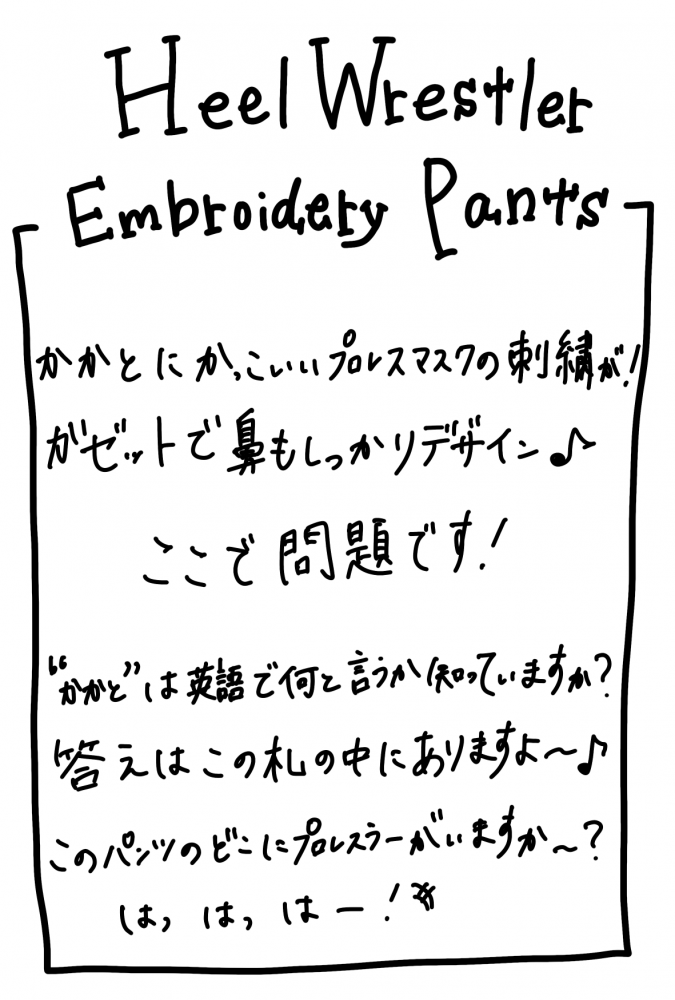 Heel Wrestler
Embroidery Pants
かかとにかっこいいプロレスマスクの刺繍が!
ガゼットで鼻もしっかりデザイン♪
ここで問題です!
“かかと”は英語で何と言うか知っていますか?
答えはこの札の中にありますよ〜♪
このパンツのどこにプロレスラーがいますか〜?
はっはっはー!